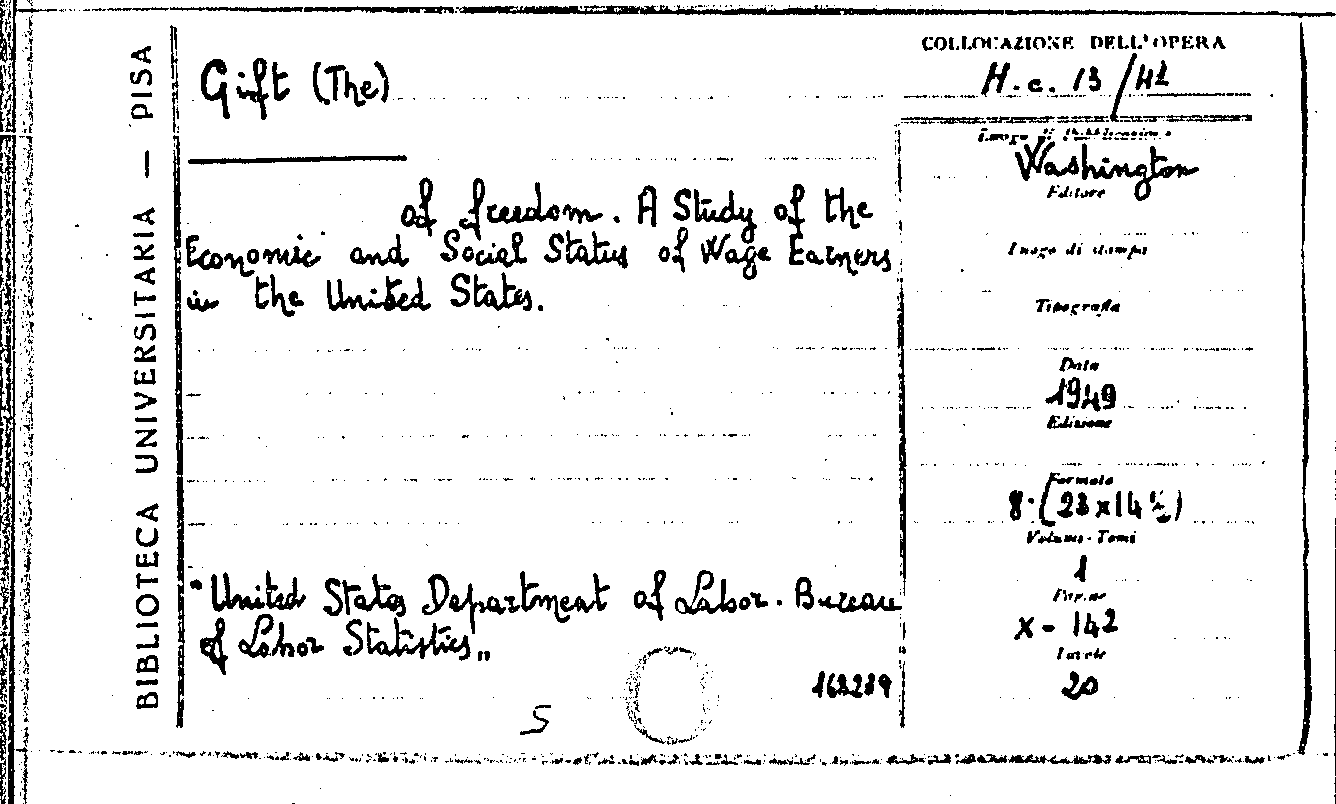 BIBLIOTECA UNIVERSITARIA — PISA
Gift (The)
of freedom. A Study of the
Economic and Social Status of Wage Earners
in the United States.
"United States Department of Labor. Bureau
of Labor Statistics„
S
COLLOCAZIONE DELL'OPERA
H. c. 13/42
Luogo di Pubblicazione
Washington
Editore
Luogo di stampa
Tipografia
Data
1949
Edizione
Formato
8° (23x14½)
Volume - Tomi
1
Pagine
X - 142
Tavole
20